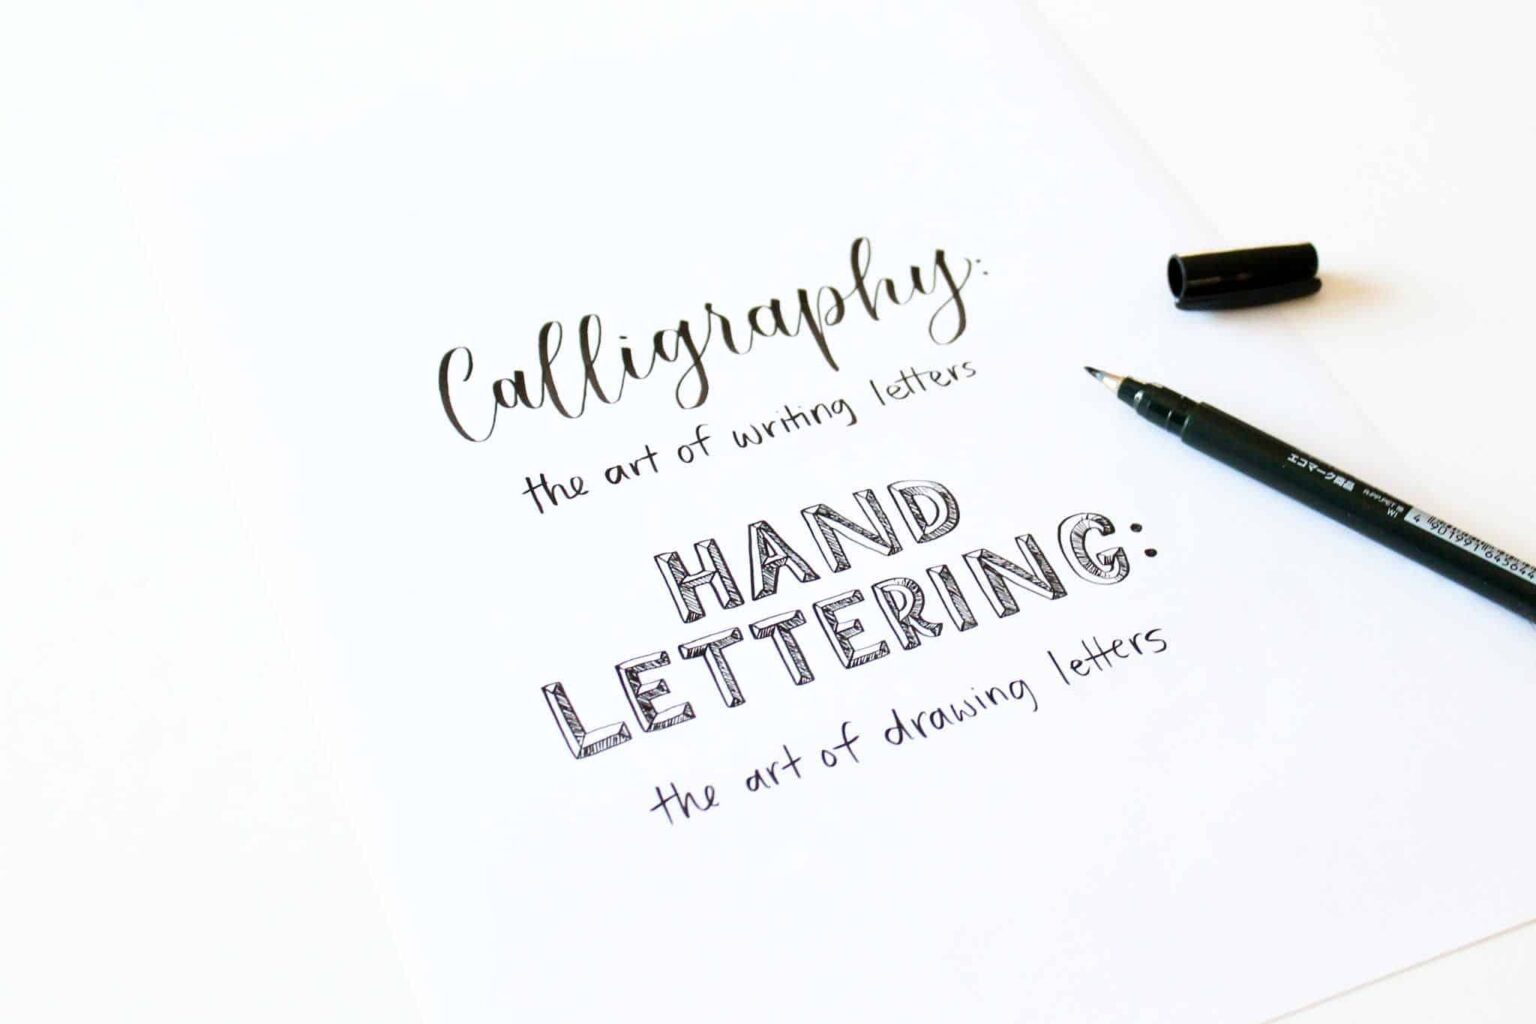 Calligraphy:
the art of writing letters
HAND
LETTERING:
the art of drawing letters
エコマーク商品